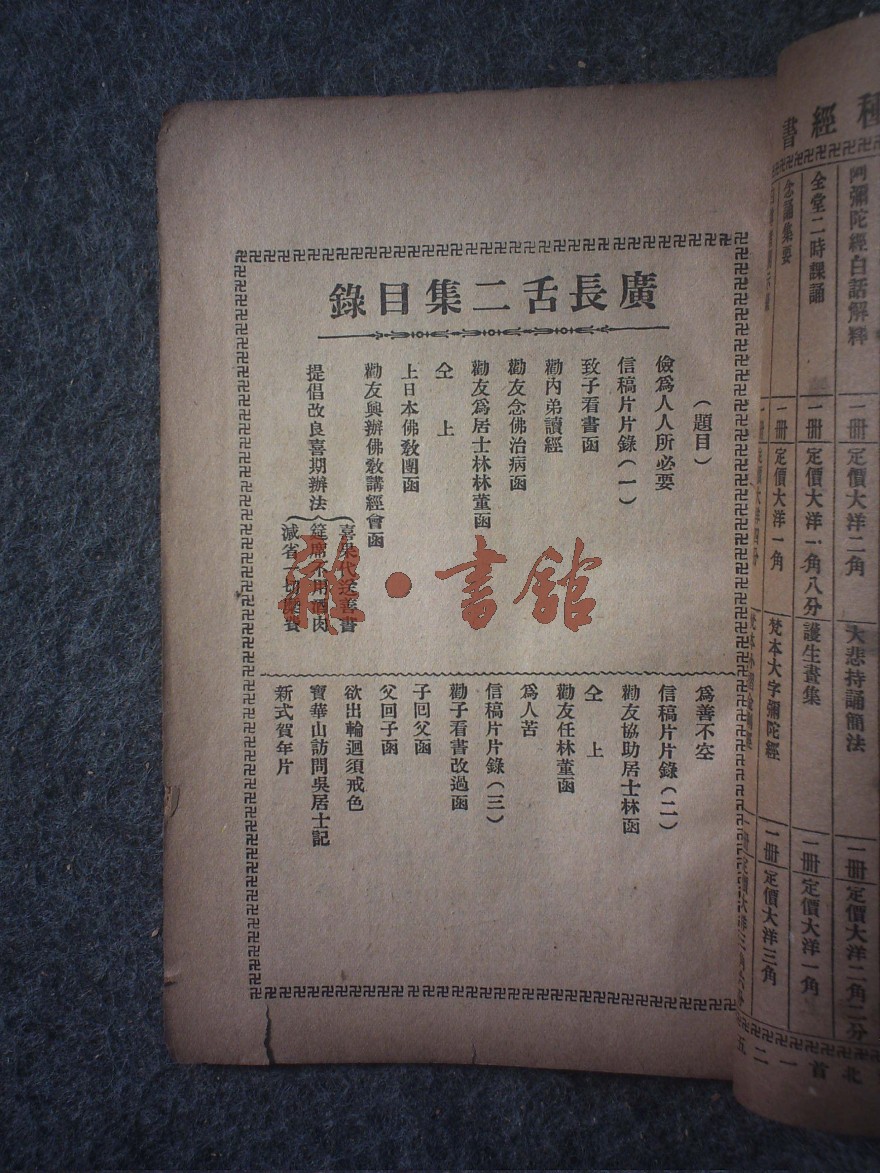 廣長舌二集目錄
(題目)
儉為人人所必要
信稿片片錄(一)
致子看書函
勸內弟讀經
勸友念佛治病函
勸友為居士林林董函
仝上
上日本佛教團函
勸友興辦佛教講經會函
提倡改良喜期辦法
喜果代送善書
筵席不用酒肉
減省一切糜費
為善不空
信稿片片錄(二)
勸友協助居士林函
仝上
勸友任林董函
為人苦
信稿片片錄(三)
勸子看書改過函
子回父函
父回子函
欲出輪迴須戒色
寶華山訪問吳居士記
新式賀年片
雜·書館
種經書
阿彌陀經白話解釋
一冊
定價大洋二角
大悲持誦簡法
一冊
定價大洋二角二分
全堂二時課誦
一冊
定價大洋一角八分
護生畫集
一冊
定價大洋一角
念誦集要
一冊
定價大洋一角
梵本大字彌陀經
一冊
定價大洋三角
北首一二五